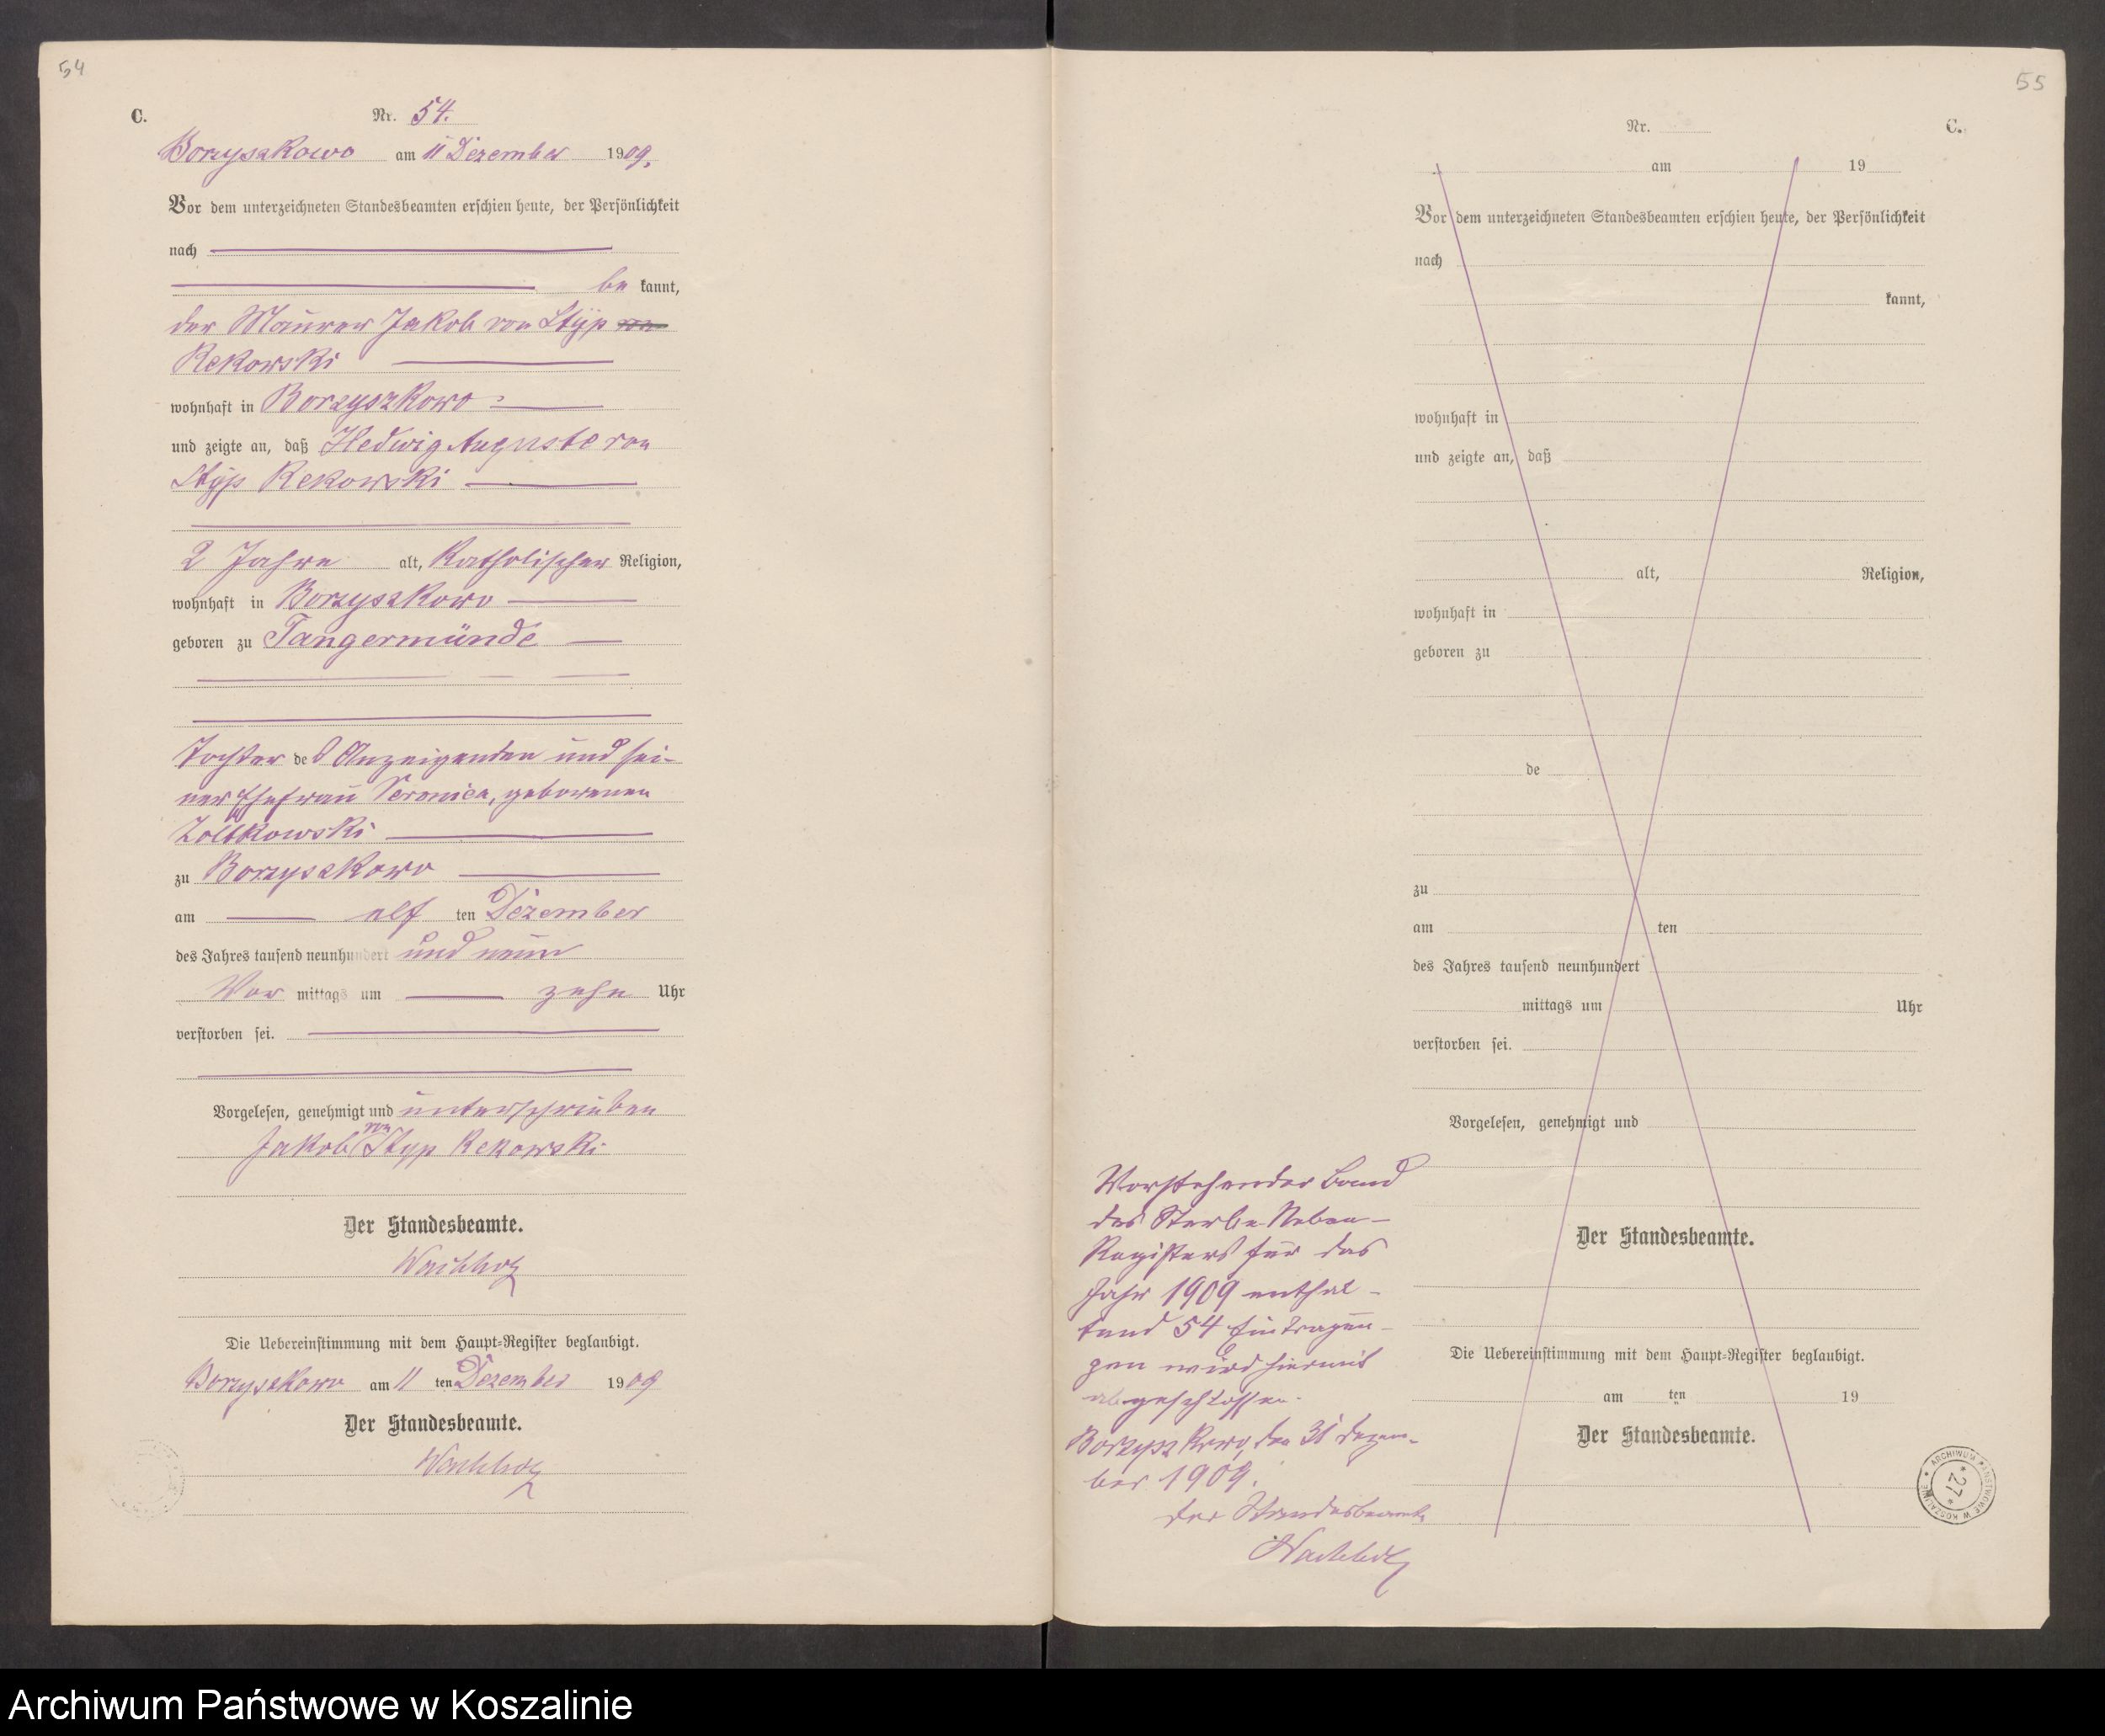 54
C.
Nr. 54.
Borzyszkowo am 11 Dezember 1909.
Vor dem unterzeichneten Standesbeamten erschien heute, der Persönlichkeit
nach
be kannt,
der Maurer Jakob von Styp
Rekowski
wohnhaft in Borzyszkowo
und zeigte an, daß Hedwig Auguste von
Styp Rekowski
2 Jahre alt, katholischer Religion,
wohnhaft in Borzyszkowo
geboren zu Tangermünde
Tochter des Anzeigenden und sei-
ner Ehefrau Veronica, geborenen
Zoltkowski
zu Borzyszkowo
am elf ten Dezember
des Jahres tausend neunhundert und neun
Vor mittags um zehn Uhr
verstorben sei.
Vorgelesen, genehmigt und unterschrieben
Jakob von Styp Rekowski
Der Standesbeamte.
Die Uebereinstimmung mit dem Haupt-Register beglaubigt.
Borzyszkowo am 11 ten Dezember 1909
Der Standesbeamte.
55
Nr.
C.
am 19
Vor dem unterzeichneten Standesbeamten erschien heute, der Persönlichkeit
nach
kannt,
wohnhaft in
und zeigte an, daß
alt, Religion,
wohnhaft in
geboren zu
de
zu
am ten
des Jahres tausend neunhundert
mittags um Uhr
verstorben sei.
Vorgelesen, genehmigt und
Der Standesbeamte.
Die Uebereinstimmung mit dem Haupt-Register beglaubigt.
am ten 19
Der Standesbeamte.
Vorstehender Band
des Sterbe-Neben-
Registers für das
Jahr 1909 enthal-
tend 54 Eintragun-
gen wird hiermit
abgeschlossen.
Borzyszkowo, den 31 Dezem-
ber 1909.
Der Standesbeamte
ARCHIWUM PAŃSTWOWE W KOSZALINIE
*27*
Archiwum Państwowe w Koszalinie